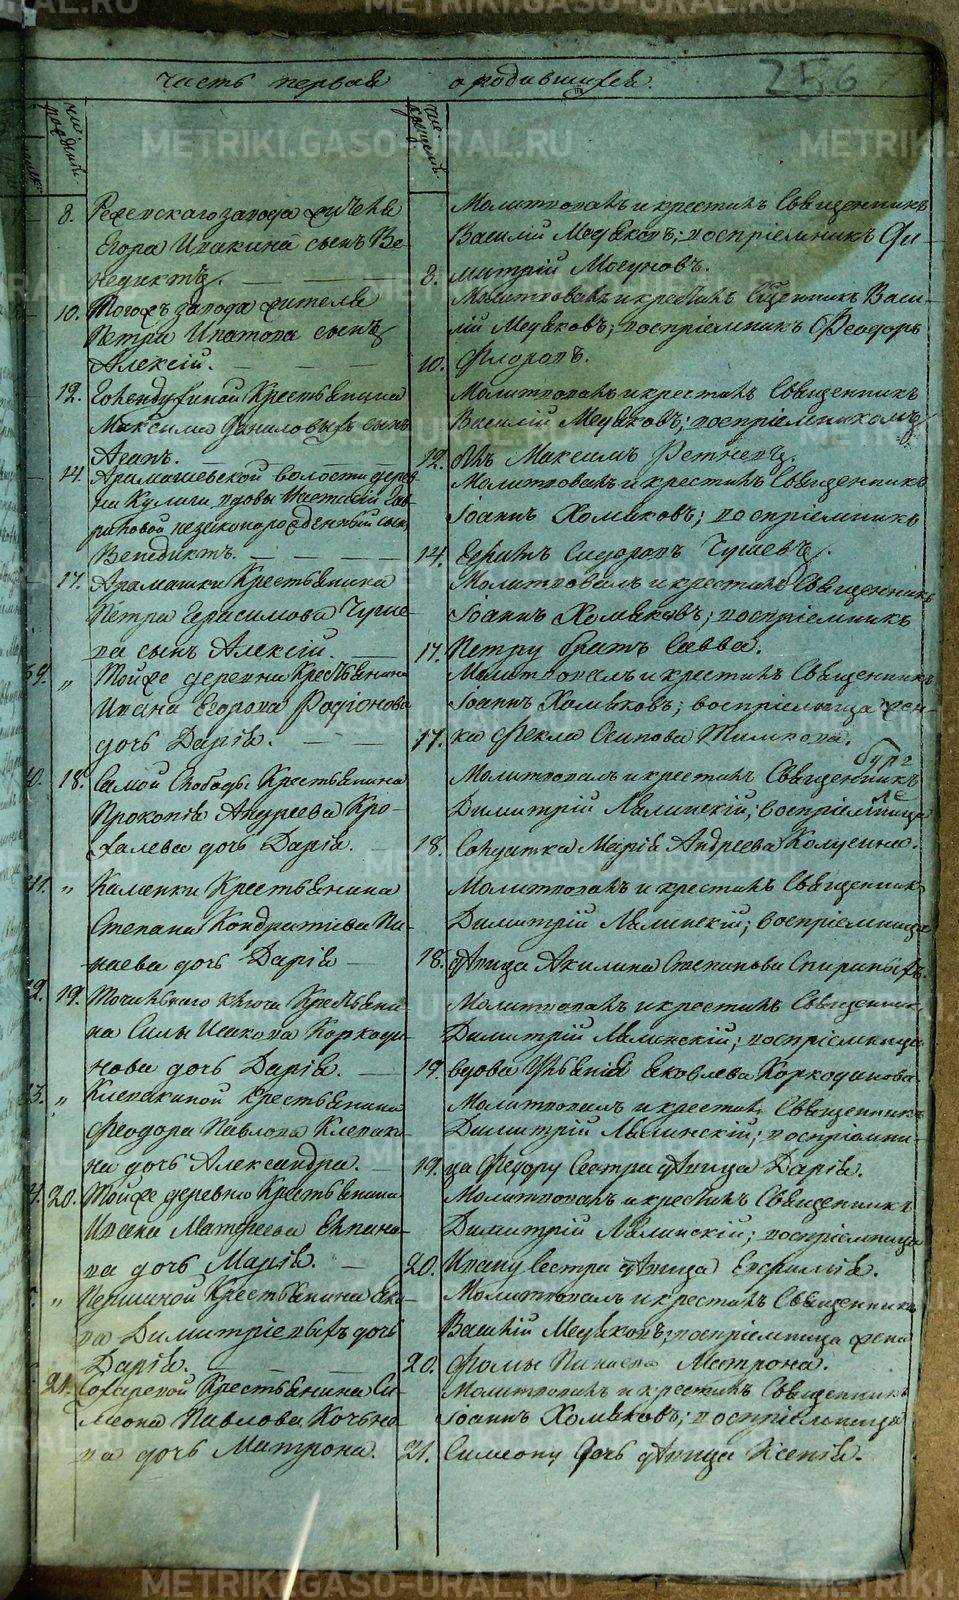 Часть первая
о родившихся.
256
чис. рожденiя.
чис. крещенiя.
8. Режевскаго завода жителя
Егора Ипакина сынъ Ве-
недиктъ.
Молитвовалъ и крестилъ Священникъ
Василiй Медяковъ; воспрiемникъ Ди-
8. митрiй Мосуновъ.
10. Тогожъ завода жителя
Петра Ипатова сынъ
Алексiй.
Молитвовалъ и крестилъ Сщенникъ Васи-
лiй Медяковъ; воспрiемникъ Феодоръ
10. Флоровъ.
12. Крестьянина
Максима Даниловыхъ сынъ
Агапъ.
Молитвовалъ и крестилъ Священникъ
Василiй Медяковъ; воспрiемникомъ
12. былъ Максимъ
14. Арамашевской волости дерев-
ни Кулиги вдовы Настасiи Гав-
риловой незаконорожденный сынъ
Венедиктъ.
Молитвовалъ и крестилъ Священникъ
Iоаннъ Хомяковъ; воспрiемникъ
14. Сидоровъ Чушевъ.
17. Арамашки Крестьянина
Петра Герасимова Чуше-
ва сынъ Алексiй.
Молитвовалъ и крестилъ Священникъ
Iоаннъ Хомяковъ; воспрiемникъ
17. Петру братъ Савва.
39. „ Тойже деревни Крестьянина
Ивана Егорова Родiонова
дочь Дарiя.
Молитвовалъ и крестилъ Священникъ
Iоаннъ Хомяковъ; воспрiемница жен-
17. ка Фекла Осипова
40. 18. Самой Слободы Крестьянина
Прокопiя Андреева Кро-
халева дочь Дарiя.
Молитвовалъ и крестилъ Священникъ
Димитрiй Лялинскiй; воспрiемница
18. Солдатка Марiя Андреева
41. „ Каменки Крестьянина
Степана Кондратiева Пи-
наева дочь Дарiя
Молитвовалъ и крестилъ Священникъ
Димитрiй Лялинскiй; воспрiемница
18. дѣвица Акилина Степанова Спириныхъ.
42. 19. Точильнаго ключа Крестьяни-
на Силы Исакова Коркоди-
нова дочь Дарiя.
Молитвовалъ и крестилъ Священникъ
Димитрiй Лялинскiй; воспрiемница
19. вдова Ульянiя Яковлева Коркодинова.
43. „ Клевакиной Крестьянина
Феодора Павлова Клеваки-
на дочь Александра.
Молитвовалъ и крестилъ Священникъ
Димитрiй Лялинскiй; воспрiемни-
19. ца Федору сестра дѣвица Дарiя.
20. Тойже деревни Крестьянина
Ивана Матфеева
ва дочь Марiя.
Молитвовалъ и крестилъ Священникъ
Димитрiй Лялинскiй; воспрiемница
20. Ивану сестра дѣвица Евфимiя.
„ Першиной Крестьянина Яко-
ва Димитрiевыхъ дочь
Дарiя.
Молитвовалъ и крестилъ Священникъ
Василiй Медяковъ; воспрiемница жена
20. Фомы Пинаева Матрона.
21. Сохаревой Крестьянина Си-
меона Павлова Кочьне-
ва дочь Матрона.
Молитвовалъ и крестилъ Священникъ
Iоаннъ Хомяковъ; воспрiемница
21. Симеону дочь дѣвица Ксенiя.
METRIKI.GASO-URAL.RU